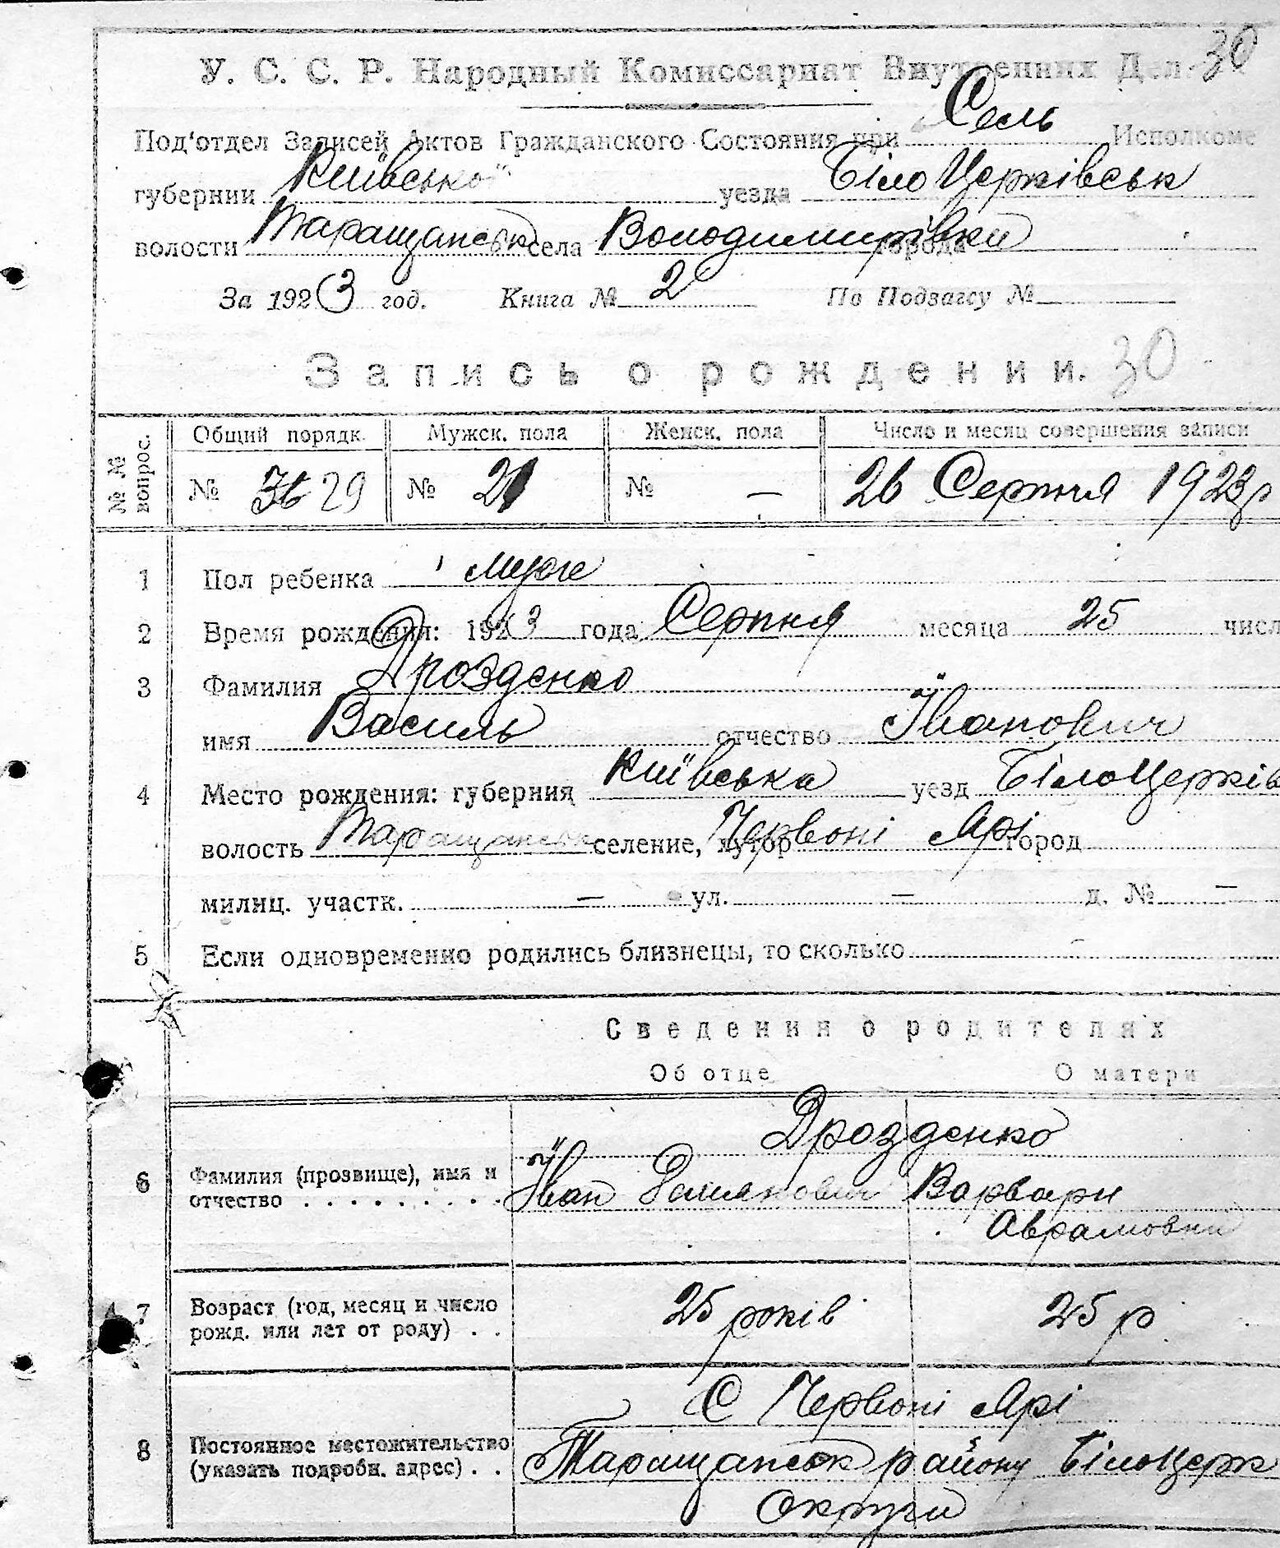 30
У. С. С. Р. Народный Комиссариат Внутренних Дел.
Под'отдел Записей Актов Гражданского Состояния при Сель Исполкоме
губернии Київської уезда БілоЦерківськ
волости Таращанськ села Володимирівки города
За 1923 год. Книга № 2 По Подзагсу №
Запись о рождении. 30
№ № вопрос.
Общий порядк. Мужск. пола Женск. пола Число и месяц совершения записи
№ 29 № 21 № — 26 Серпня 1923 р
1 Пол ребенка муже
2 Время рождения: 1923 года Серпня месяца 25 числ
3 Фамилия Дрозденко
имя Василь отчество Іванович
4 Место рождения: губерния Київська уезд БілоЦерків
волость Таращанськ селение, хутор Червоні Ярі город
милиц. участк. — ул. — д. № —
5 Если одновременно родились близнецы, то сколько -
Сведения о родителях
Об отце О матери
Дрозденко
6 Фамилия (прозвище), имя и отчество . . . . . . . Іван Варвари
Аврамовни
7 Возраст (год, месяц и число рожд. или лет от роду) . . 25 років 25 р
С Червоні Ярі
8 Постоянное местожительство (указать подробн. адрес) . . Таращанськ району БілоЦерк
Округи